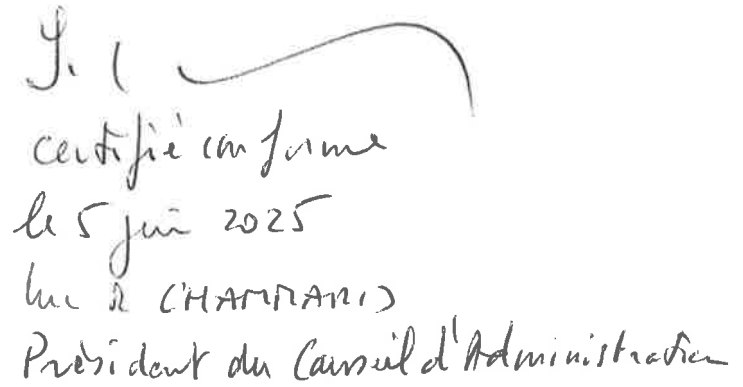 certifié conforme
le 5 juin 2025
Luc
Président du Conseil d'Administration